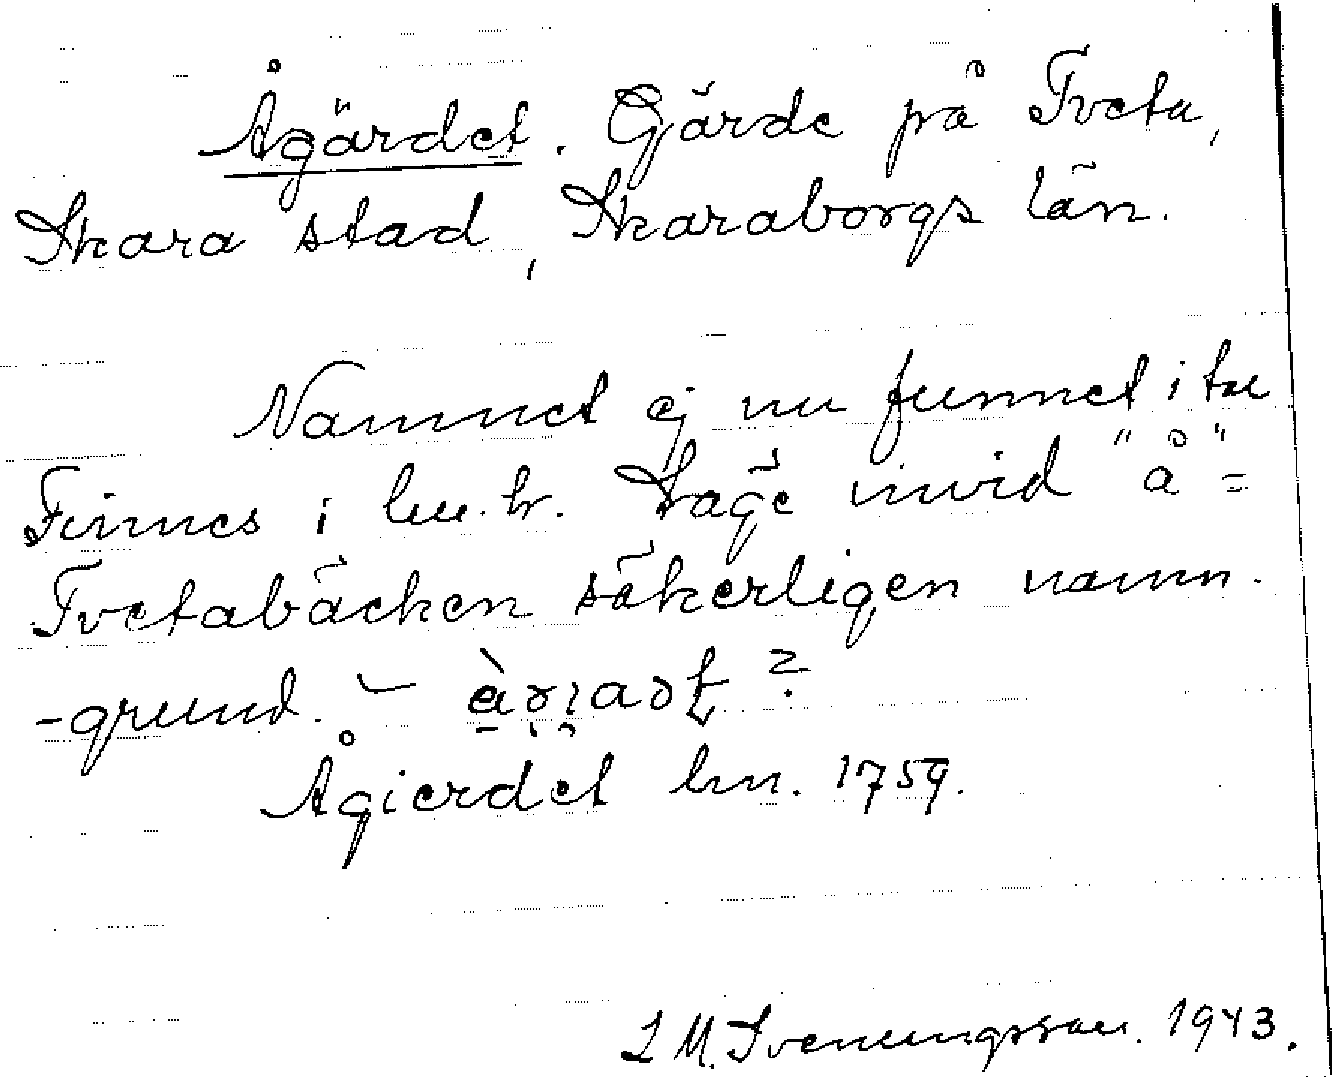 Ågärdet. Gärde på Tveta,
Skara stad, Skaraborgs län.
Namnet ej nu funnet i tu
Finnes i lm. hr. Läge invid "å" =
Tvetabäcken säkerligen namn-
-grund. —
Ågierdet lm. 1759.
L M. Svenungsson. 1943.